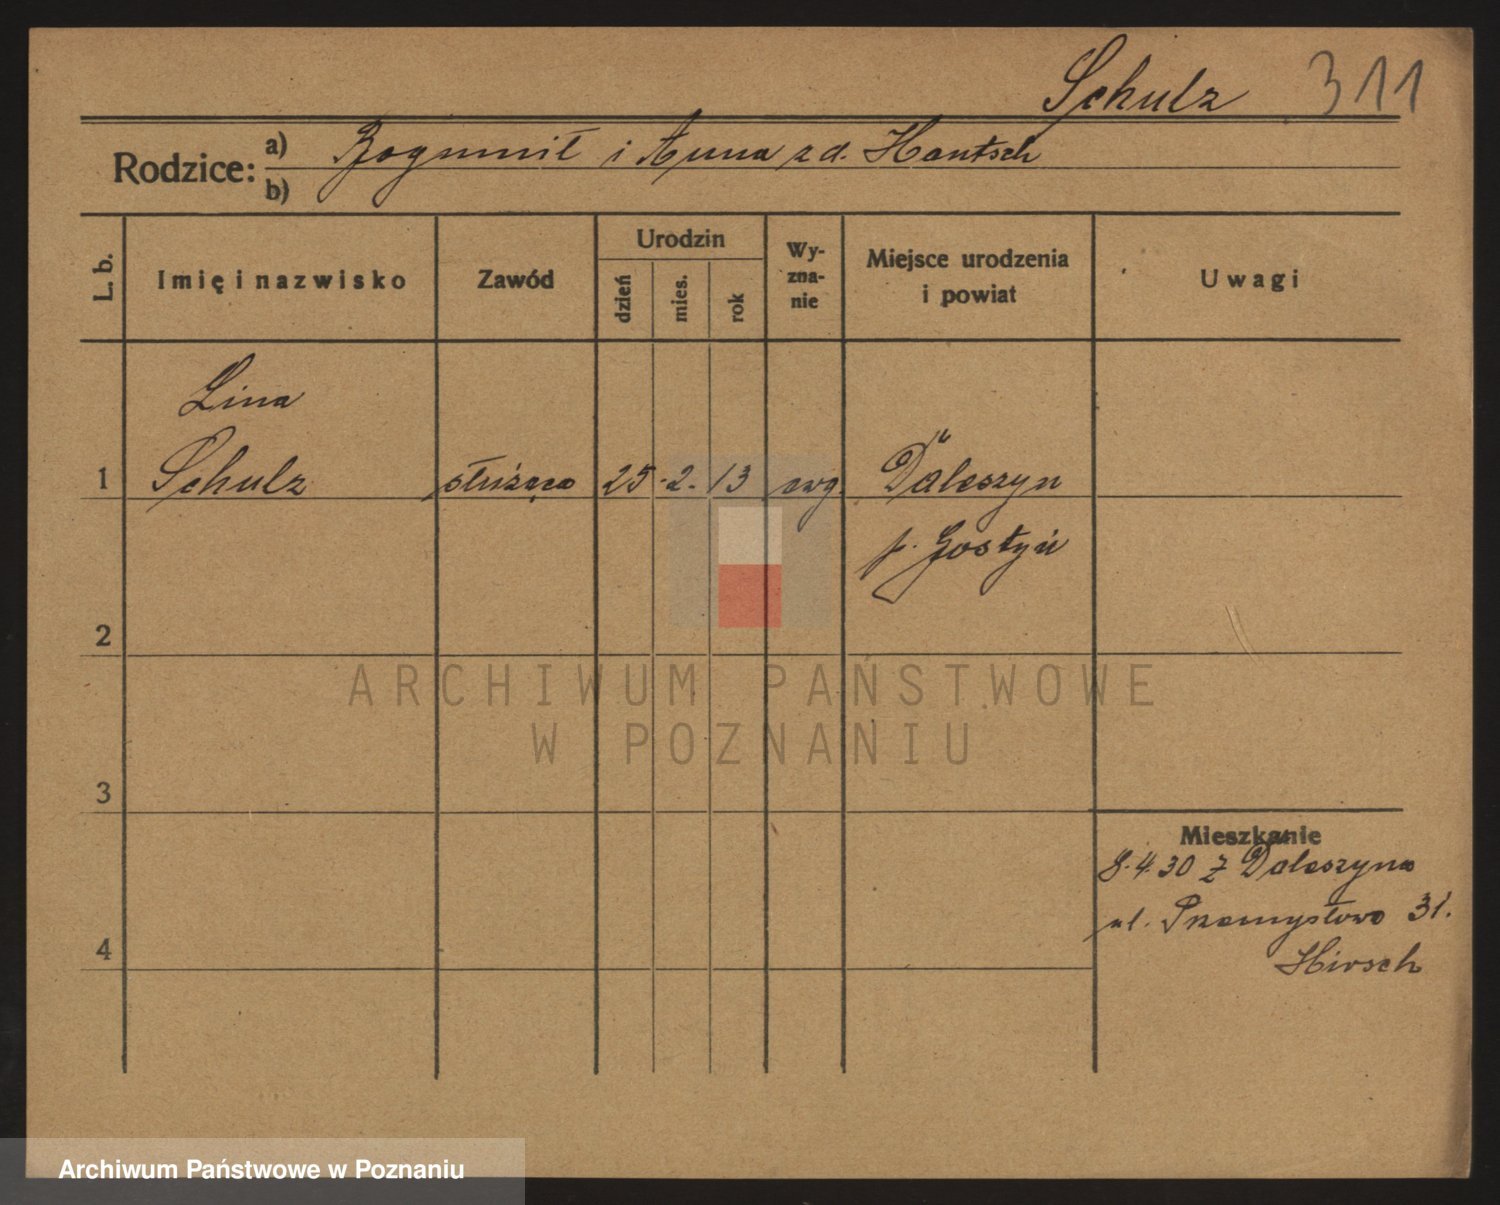 Schulz 311
Rodzice: a) Bogumił i Anna zd. Hantsch
b)
L. b.
Imię i nazwisko
Zawód
Urodzin
dzień
mies.
rok
Wy-
zna-
nie
Miejsce urodzenia
i powiat
Uwagi
Lina
1 Schulz służąca 25.2.13 ewg. Daleszyn
p. Gostyń
2
3
4
Mieszkanie
8.4.30 z Daleszyna
ul. Przemysłowa 31.
Hirsch
ARCHIWUM PAŃSTWOWE
W POZNANIU
Archiwum Państwowe w Poznaniu